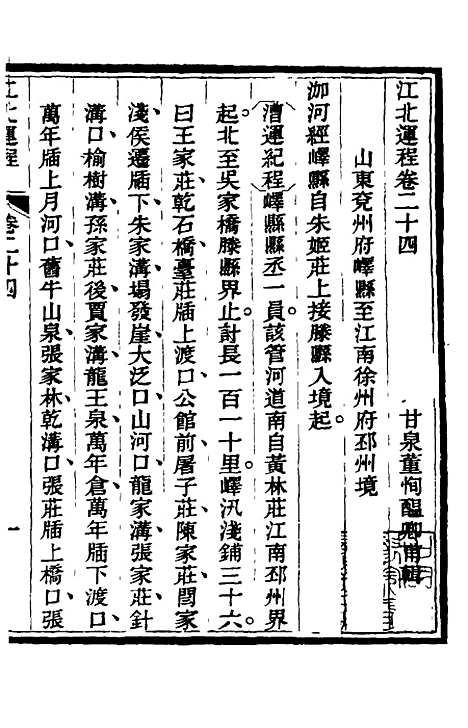 江北運程卷二十四
甘泉董恂醞卿甫輯
山東兗州府嶧縣至江南徐州府邳州境
泇河經嶧縣自朱姬莊上接滕縣入境起。
漕運紀程嶧縣縣丞一員。該管河道南自黃林莊江南邳州界
起。北至吳家橋滕縣界止。計長一百一十里。嶧汛淺鋪三十六。
曰王家莊、乾石橋、臺莊牐上渡口、公館前、屠子莊、陳家莊、閆家
淺、侯遷牐下、朱家溝、塌發崖、大泛口、山河口、龍家溝、張家莊、針
溝口、榆樹溝、孫家莊後、賈家溝、龍王泉、萬年倉、萬年牐下渡口、
萬年牐上月河口、舊牛山泉、張家林、乾溝口、張莊牐上橋口、張
江北運程
卷二十四
一